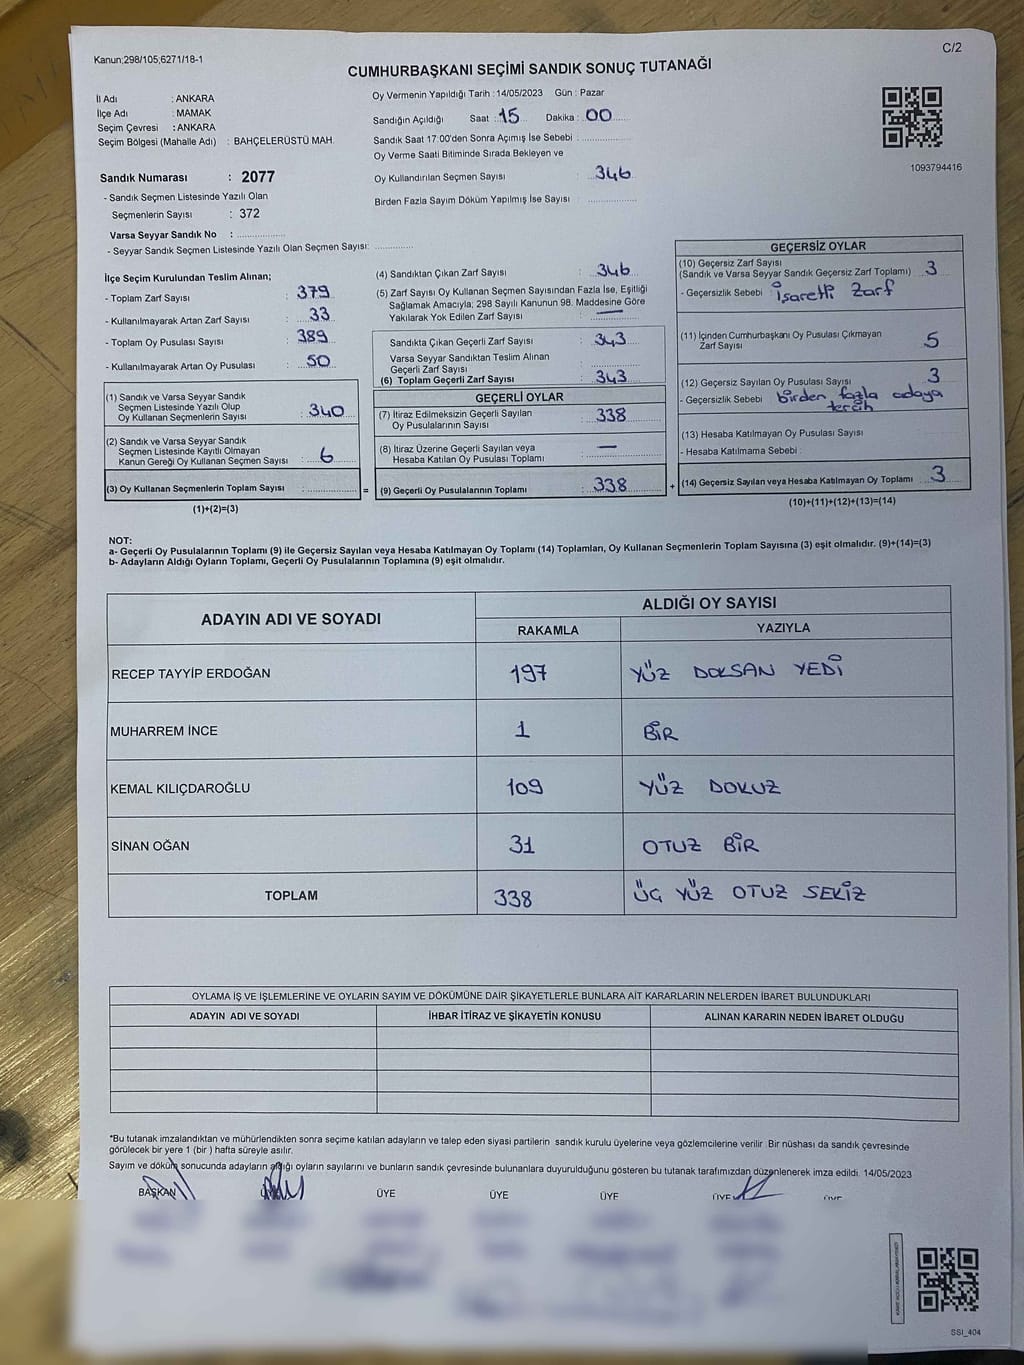 Kanun;298/105,6271/18-1
C/2
CUMHURBAŞKANI SEÇİMİ SANDIK SONUÇ TUTANAĞI
İl Adı : ANKARA
İlçe Adı : MAMAK
Seçim Çevresi : ANKARA
Seçim Bölgesi (Mahalle Adı) : BAHÇELERÜSTÜ MAH.
Oy Vermenin Yapıldığı Tarih : 14/05/2023 Gün : Pazar
Sandığın Açıldığı Saat : 15 Dakika : 00
Sandık Saat 17:00'den Sonra Açımış İse Sebebi :
Oy Verme Saati Bitiminde Sırada Bekleyen ve
Oy Kullandırılan Seçmen Sayısı : 346
Birden Fazla Sayım Döküm Yapılmış İse Sayısı :
1093794416
Sandık Numarası : 2077
- Sandık Seçmen Listesinde Yazılı Olan
Seçmenlerin Sayısı : 372
Varsa Seyyar Sandık No :
- Seyyar Sandık Seçmen Listesinde Yazılı Olan Seçmen Sayısı:
İlçe Seçim Kurulundan Teslim Alınan;
- Toplam Zarf Sayısı : 379
- Kullanılmayarak Artan Zarf Sayısı : 33
- Toplam Oy Pusulası Sayısı : 389
- Kullanılmayarak Artan Oy Pusulası : 50
(1) Sandık ve Varsa Seyyar Sandık
Seçmen Listesinde Yazılı Olup
Oy Kullanan Seçmenlerin Sayısı : 340
(2) Sandık ve Varsa Seyyar Sandık
Seçmen Listesinde Kayıtlı Olmayan
Kanun Gereği Oy Kullanan Seçmen Sayısı : 6
(3) Oy Kullanan Seçmenlerin Toplam Sayısı :
(1)+(2)=(3)
(4) Sandıktan Çıkan Zarf Sayısı : 346
(5) Zarf Sayısı Oy Kullanan Seçmen Sayısından Fazla İse, Eşitliği
Sağlamak Amacıyla; 298 Sayılı Kanunun 98. Maddesine Göre
Yakılarak Yok Edilen Zarf Sayısı : —
Sandıkta Çıkan Geçerli Zarf Sayısı : 343
Varsa Seyyar Sandıktan Teslim Alınan
Geçerli Zarf Sayısı :
(6) Toplam Geçerli Zarf Sayısı : 343
GEÇERLİ OYLAR
(7) İtiraz Edilmeksizin Geçerli Sayılan
Oy Pusulalarının Sayısı : 338
(8) İtiraz Üzerine Geçerli Sayılan veya
Hesaba Katılan Oy Pusulası Toplamı : —
= (9) Geçerli Oy Pusulalarının Toplamı : 338
GEÇERSİZ OYLAR
(10) Geçersiz Zarf Sayısı
(Sandık ve Varsa Seyyar Sandık Geçersiz Zarf Toplamı) : 3
- Geçersizlik Sebebi : işaretli zarf
(11) İçinden Cumhurbaşkanı Oy Pusulası Çıkmayan
Zarf Sayısı 5
(12) Geçersiz Sayılan Oy Pusulası Sayısı : 3
- Geçersizlik Sebebi : birden fazla adaya
tercih
(13) Hesaba Katılmayan Oy Pusulası Sayısı
- Hesaba Katılmama Sebebi :
+ (14) Geçersiz Sayılan veya Hesaba Katılmayan Oy Toplamı : 3
(10)+(11)+(12)+(13)=(14)
NOT:
a- Geçerli Oy Pusulalarının Toplamı (9) ile Geçersiz Sayılan veya Hesaba Katılmayan Oy Toplamı (14) Toplamları, Oy Kullanan Seçmenlerin Toplam Sayısına (3) eşit olmalıdır. (9)+(14)=(3)
b- Adayların Aldığı Oyların Toplamı, Geçerli Oy Pusulalarının Toplamına (9) eşit olmalıdır.
ADAYIN ADI VE SOYADI
ALDIĞI OY SAYISI
RAKAMLA YAZIYLA
RECEP TAYYİP ERDOĞAN 197 YÜZ DOKSAN YEDİ
MUHARREM İNCE 1 BİR
KEMAL KILIÇDAROĞLU 109 YÜZ DOKUZ
SİNAN OĞAN 31 OTUZ BİR
TOPLAM 338 ÜÇ YÜZ OTUZ SEKİZ
OYLAMA İŞ VE İŞLEMLERİNE VE OYLARIN SAYIM VE DÖKÜMÜNE DAİR ŞİKAYETLERLE BUNLARA AİT KARARLARIN NELERDEN İBARET BULUNDUKLARI
ADAYIN ADI VE SOYADI İHBAR İTİRAZ VE ŞİKAYETİN KONUSU ALINAN KARARIN NEDEN İBARET OLDUĞU
*Bu tutanak imzalandıktan ve mühürlendikten sonra seçime katılan adayların ve talep eden siyasi partilerin sandık kurulu üyelerine veya gözlemcilerine verilir. Bir nüshası da sandık çevresinde
görülecek bir yere 1 (bir ) hafta süreyle asılır.
Sayım ve döküm sonucunda adayların aldığı oyların sayılarını ve bunların sandık çevresinde bulunanlara duyurulduğunu gösteren bu tutanak tarafımızdan düzenlenerek imza edildi. 14/05/2023
BAŞKAN ÜYE ÜYE ÜYE ÜYE
SSI_404